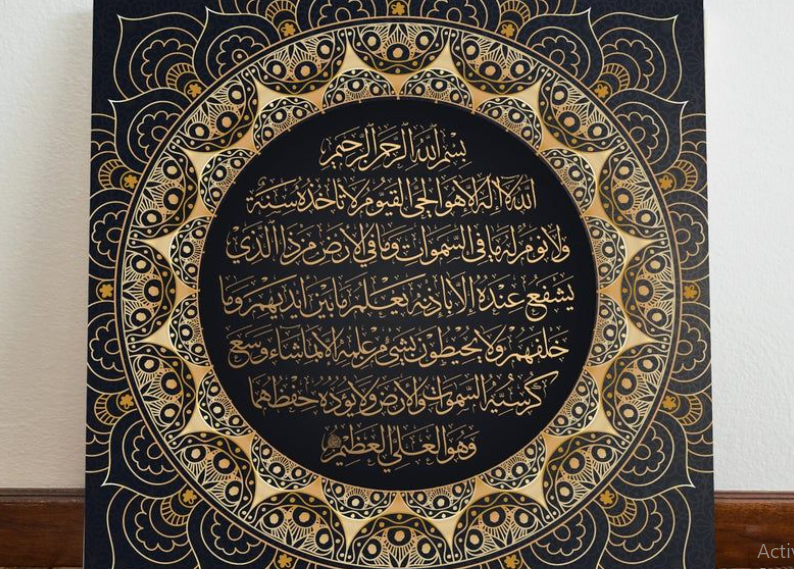 بسم الله الرحمن الرحيم
الله لا إله إلا هو الحي القيوم لا تأخذه سنة
ولا نوم له ما في السموات وما في الأرض من ذا الذي
يشفع عنده إلا بإذنه يعلم ما بين أيديهم وما
خلفهم ولا يحيطون بشيء من علمه إلا بما شاء وسع
كرسيه السموات والأرض ولا يؤده حفظهما
وهو العلي العظيم
Activ